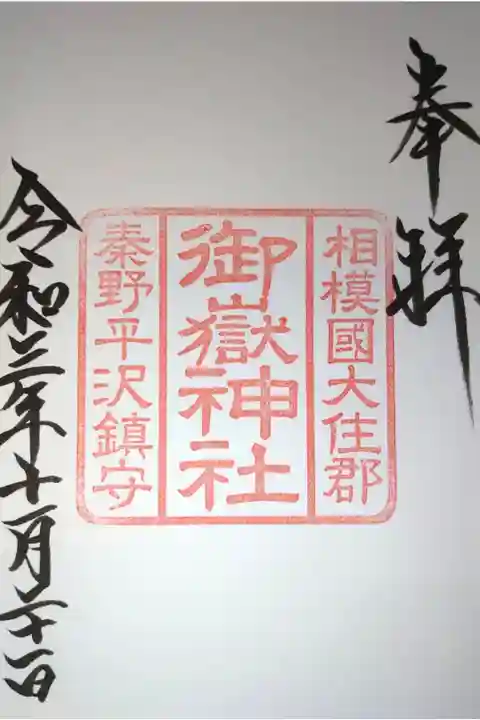 奉拝
相模國大住郡
御嶽神社
秦野平沢鎮守
令和三年十一月二十一日